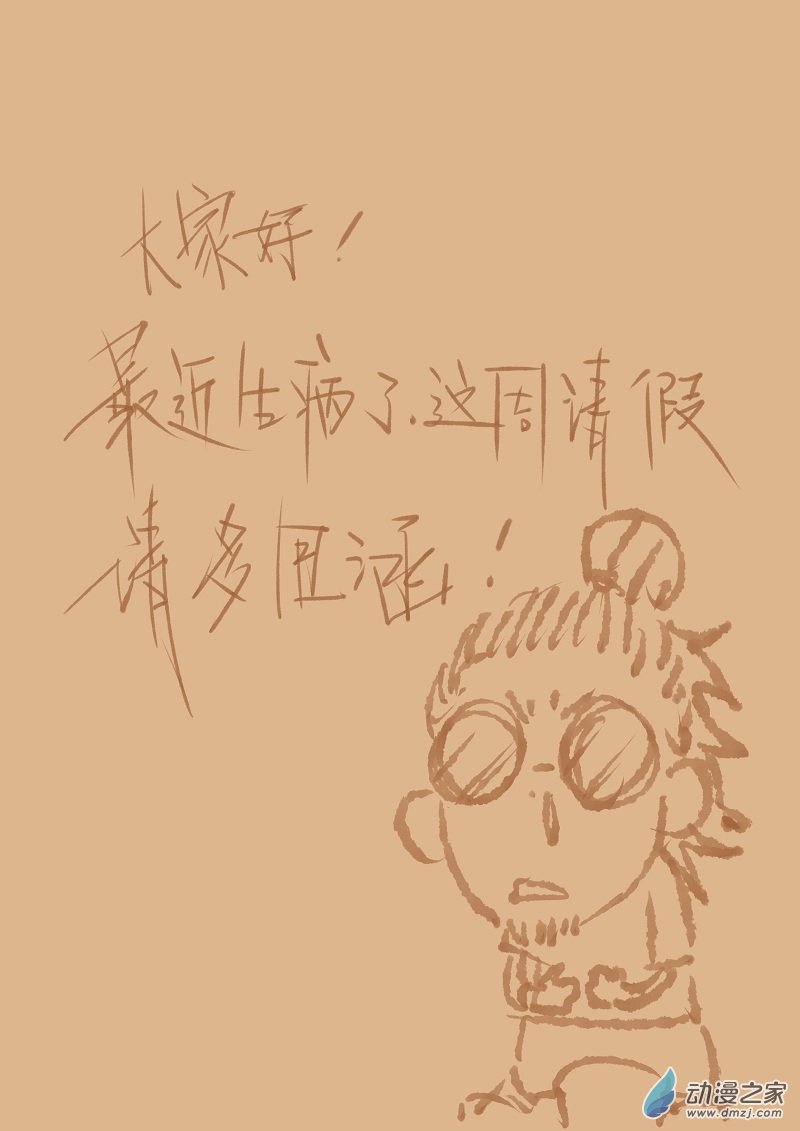 大家好！
最近生病了.这周请假
请多包涵！
动漫之家
www.dmzj.com